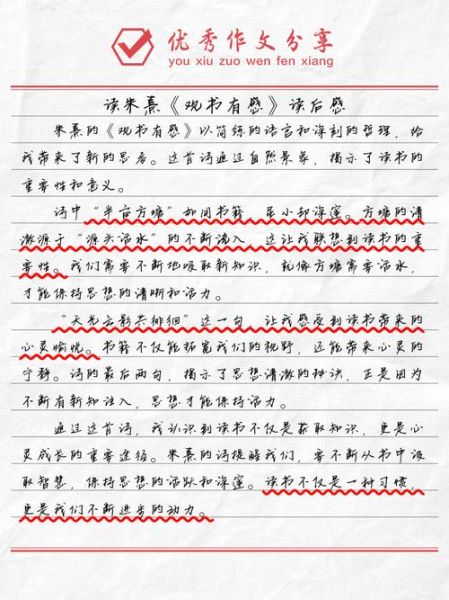 优秀作文分享
you xiu zuo wen fen xiang
读朱熹《观书有感》读后感
朱熹的《观书有感》以简练的语言和深刻的哲理，给
我带来了新的思考。这首诗通过自然景象，揭示了读书的
重要性和意义。
诗中“半亩方塘”如同书籍，虽小却深邃。方塘的清
澈源于“源头活水”的不断涌入，这让我联想到读书的重
要性。我们需要不断地吸取新知识，就像方塘需要活水，
才能保持思想的清晰和活力。
“天光云影共徘徊”这一句，让我感受到读书带来的
心灵愉悦。书籍不仅能拓宽我们的视野，还能带来心灵的
宁静。诗的最后两句，揭示了思想清澈的秘诀，正是因为
不断有新知注入，思想才能保持活力。
通过这首诗，我认识到读书不仅是获取知识，更是心
灵成长的重要途径。朱熹的诗提醒我们，要不断从书中汲
取智慧，保持思想的活跃和深邃。读书不仅是一种习惯，
更是我们不断进步的动力。